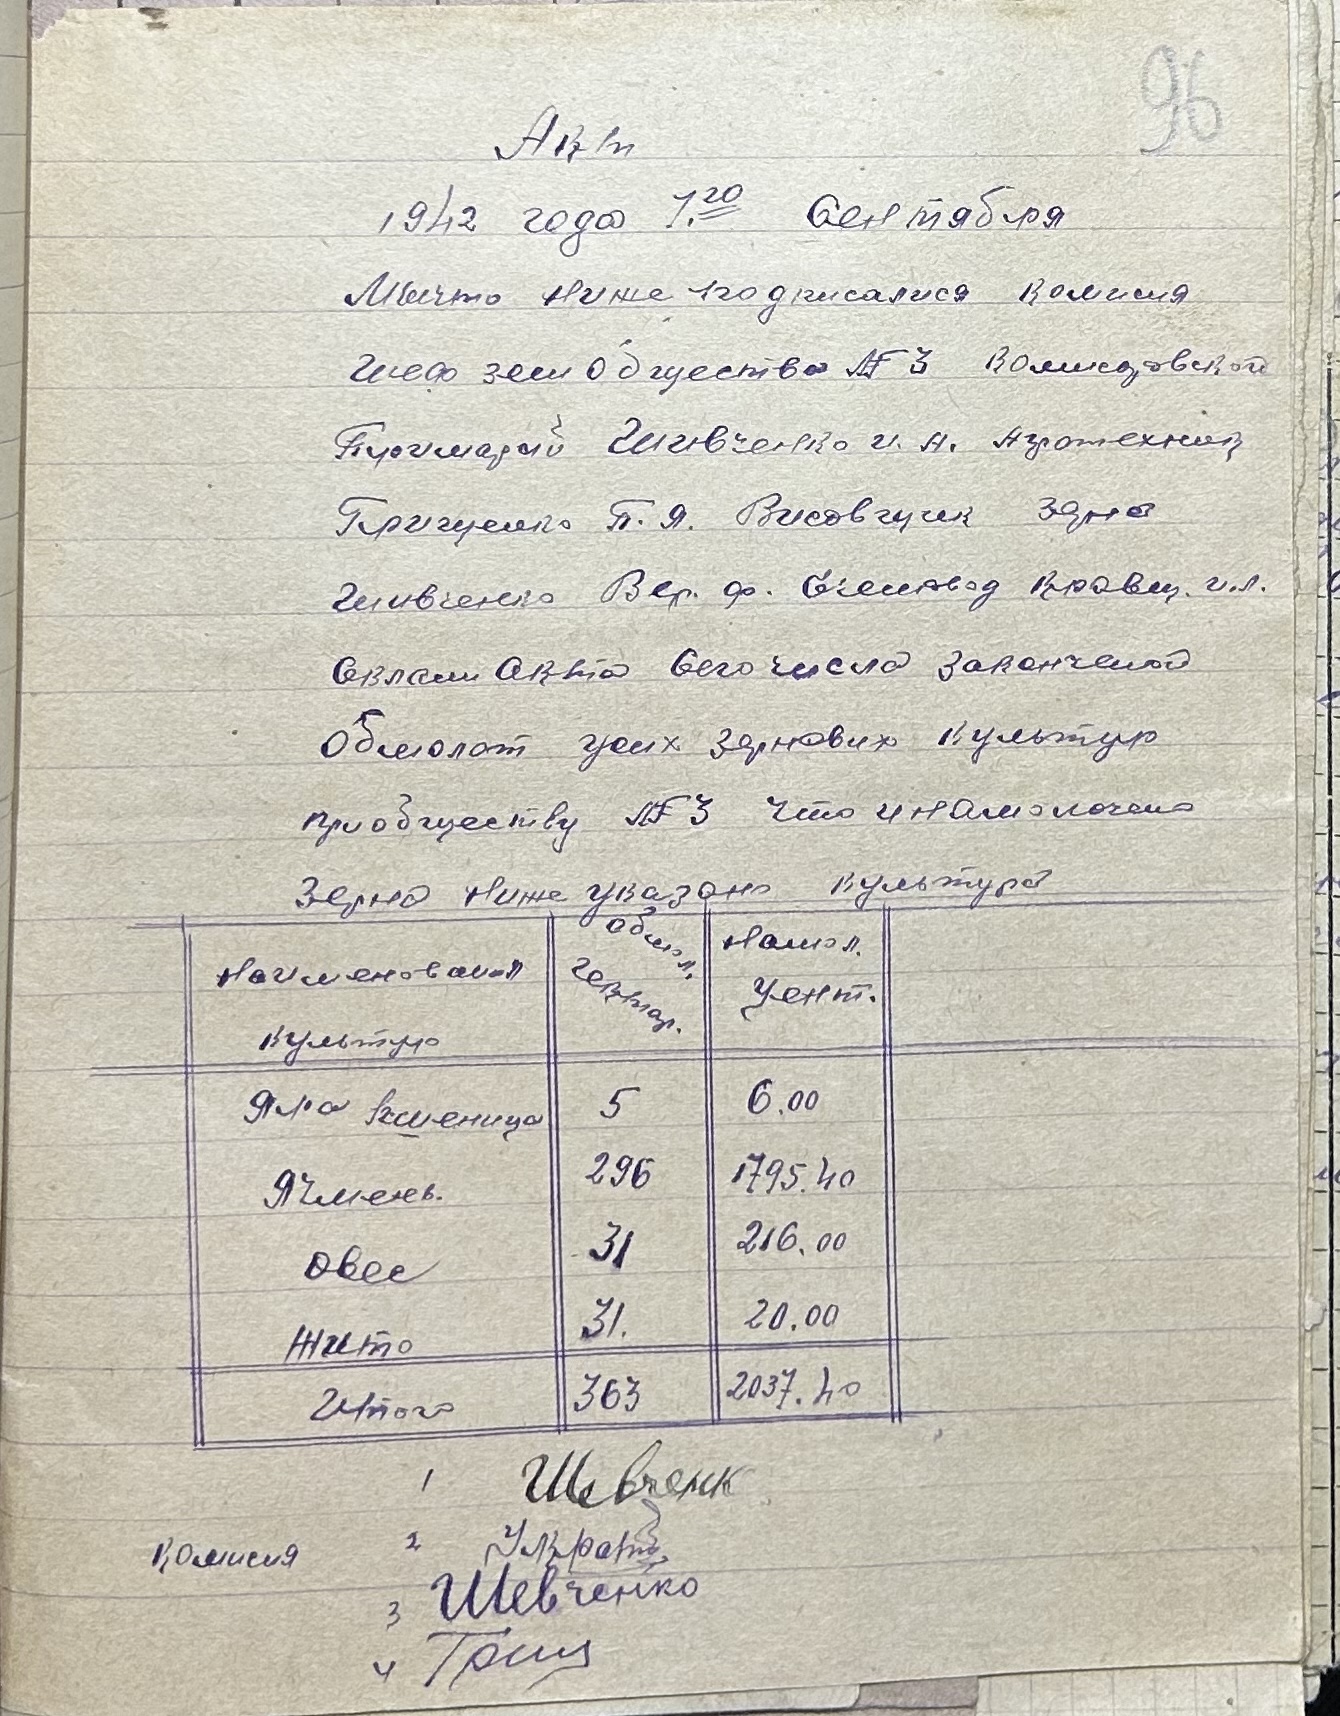 96
Акт
1942 года 1.го Сентября
Мычто ниже подписалися комисия
шеф зем Общества №3 комисаровской
Примарий Шивченко И. А. Агротехник
Грищенко П. Я. зерна
Шивченко Вер. ф. Счетовод Кравц. И.Л.
склали Акта сего числа закончений
Обмолот усих зернових культур
приобществу №3 что и намолочено
Зерна ниже указано культура
Наименования культур
Обмол. гектар.
Намол. цент.
Яра пшеница 5 6.00
Ячмень. 296 1795.40
Овес 31 216.00
Жито 31. 20.00
Итого 363 2037.40
1 Шевченк
Комисия 2
3 Шевченко
4 Грищ